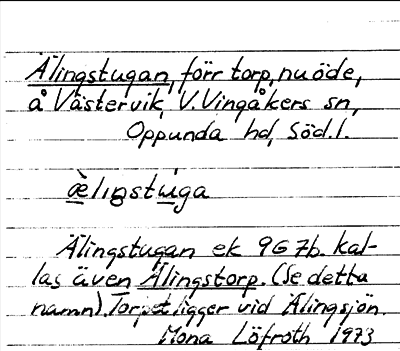 Älingstugan, förr torp, nu öde,
å Västervik, V. Vingåkers sn,
Oppunda hd, Söd.l.
æ̀lıŋstu̇ga
Älingstugan ek 9G 7b. kal-
las även Älingstorp. (Se detta
namn). Torpet ligger vid Älingsjön.
Mona Löfroth 1973